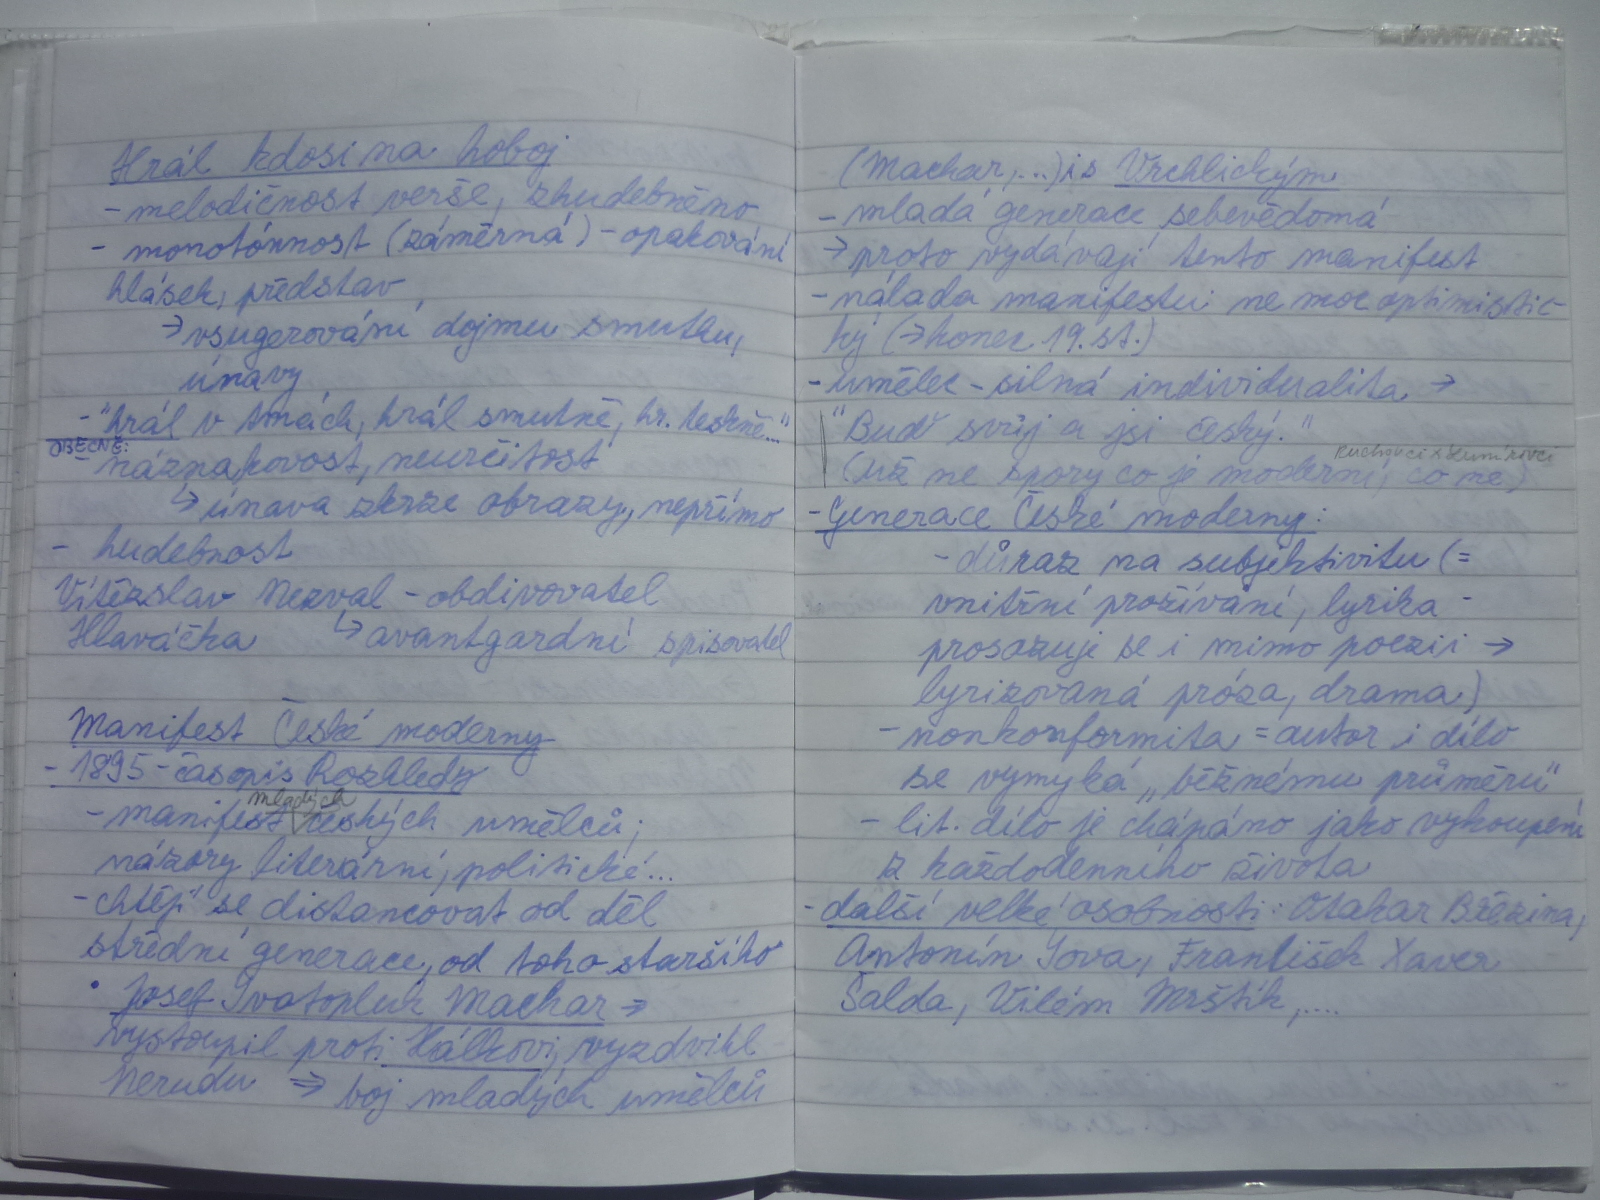 Hrál kdosi na hoboj
- melodičnost verše, zhudebněno
- monotónnost (záměrná) - opakování
hlásek, představ
→ vsugerování dojmu smutku,
únavy
- "hrál v tmách, hrál smutně, hr. teskně..."
OBECNĚ:
- náznakovost, neurčitost
↳ únava skrze obrazy, nepřímo
- hudebnost
Vítězslav Nezval - obdivovatel
Hlaváčka ↳ avantgardní spisovatel
Manifest České moderny
- 1895 - časopis Rozhledy
mladých
- manifest českých umělců;
názory literární, politické...
- chtějí se distancovat od děl
střední generace, od toho staršího
• Josef Svatopluk Machar ⇒
vystoupil proti Hálkovi, vyzdvihl
Nerudu ⇒ boj mladých umělců
(Machar,...) i s Vrchlickým
- mladá generace sebevědomá
→ proto vydávají tento manifest
- nálada manifestu: ne moc optimistic-
ký (→ konec 19. st.)
- umělec - silná individualita →
"Buď svůj a jsi český."
ruchovci x lumírovci
(už ne spory co je moderní, co ne)
- Generace České moderny:
- důraz na subjektivitu (=
vnitřní prožívání, lyrika -
prosazuje se i mimo poezii →
lyrizovaná próza, drama)
- nonkonformita = autor i dílo
se vymyká „běžnému průměru"
- lit. dílo je chápáno jako vykoupení
z každodenního života
- další velké osobnosti: Otakar Březina,
Antonín Sova, František Xaver
Šalda, Vilém Mrštík,....